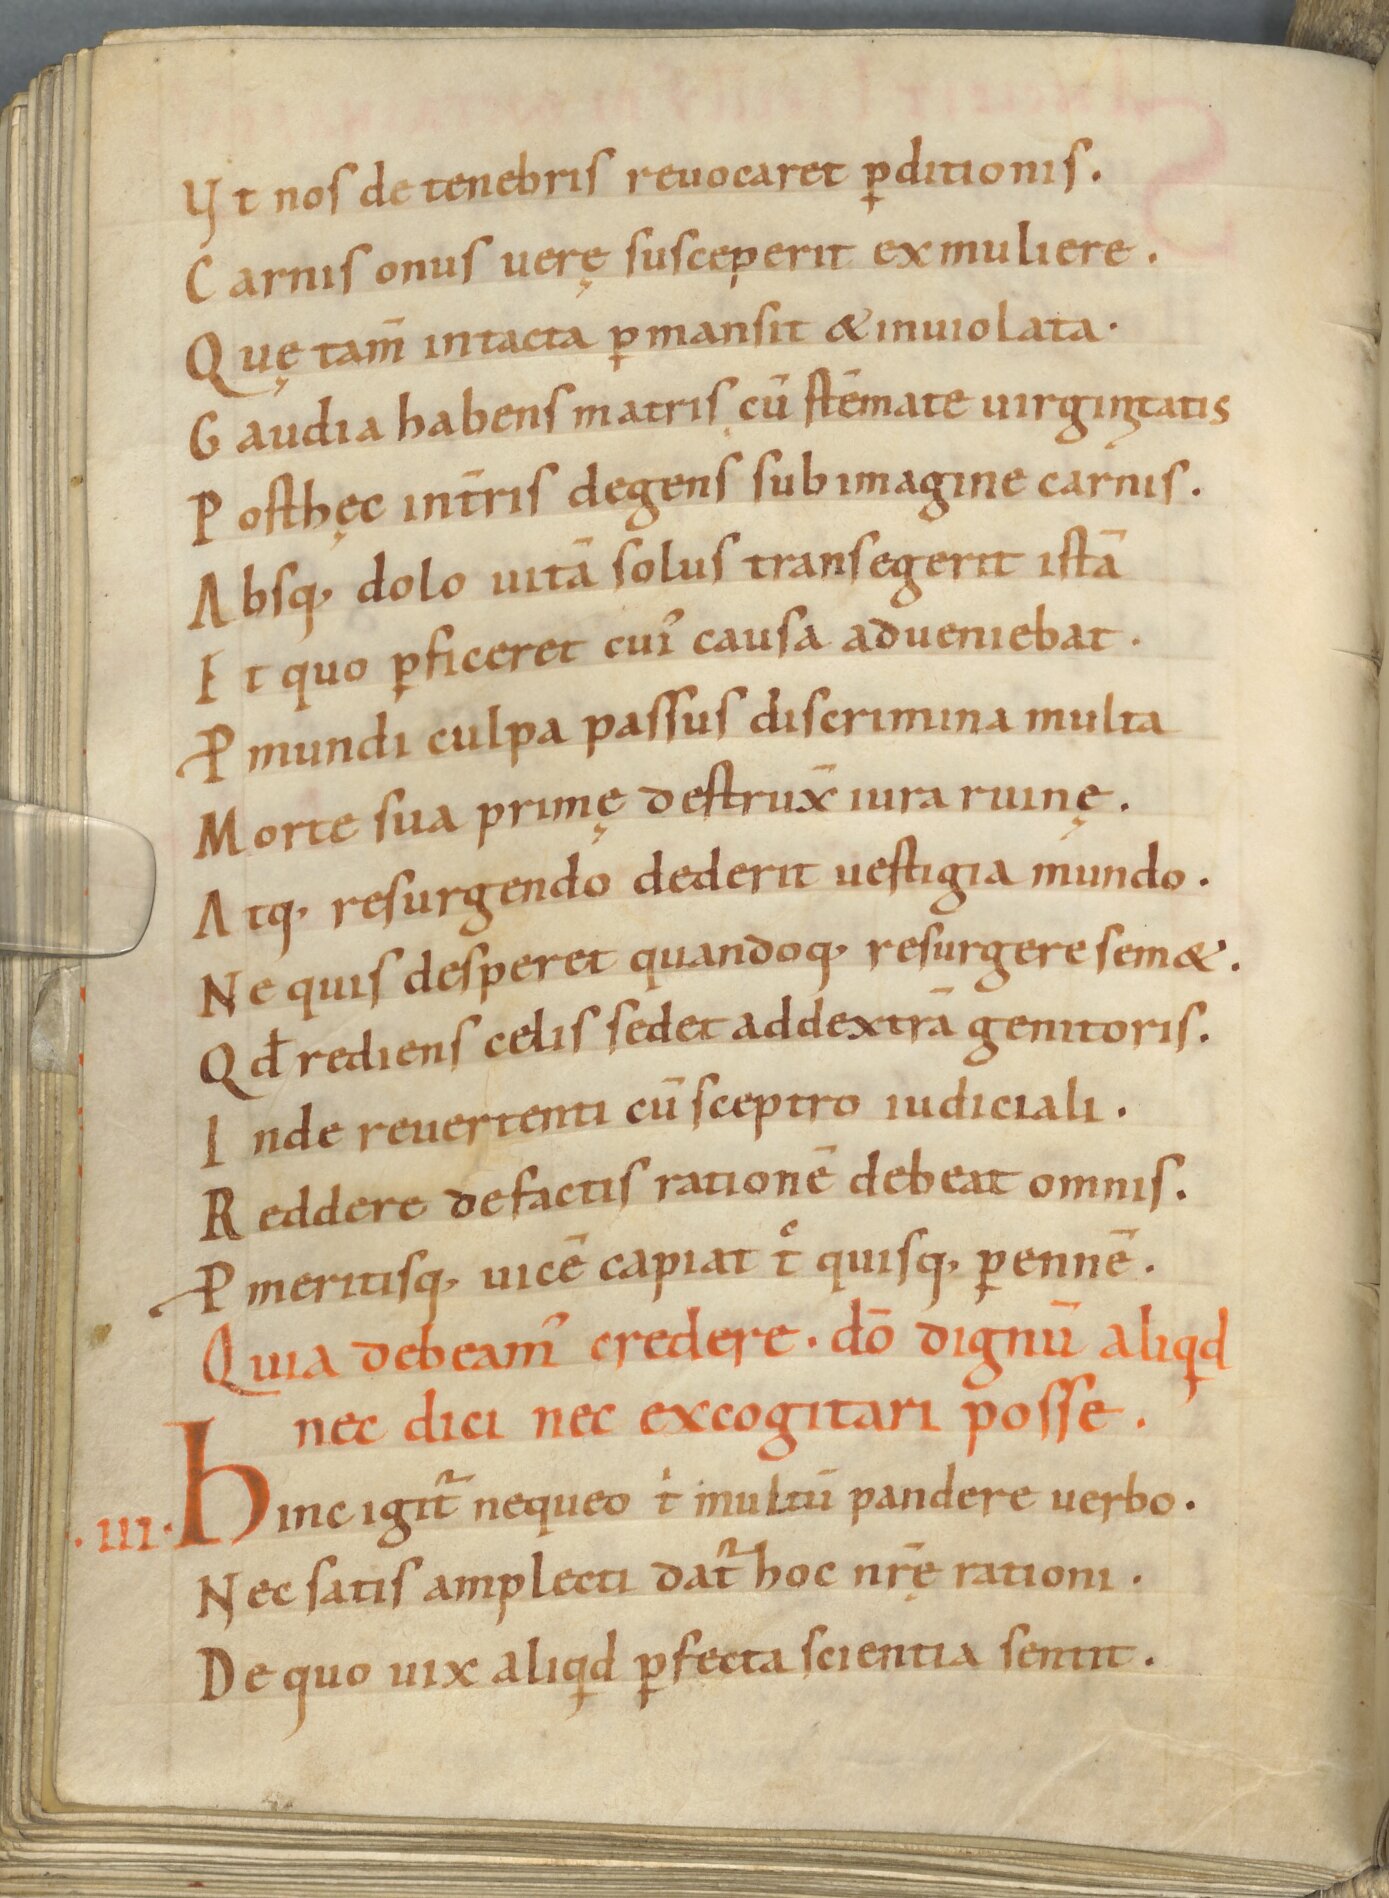 Vt nos de tenebris reuocaret ꝑditionis.
Carnis onus uerę susceperit ex muliere.
Quę tam̄ intacta ꝑmansit & inuiolata.
Gaudia habens matris cū stēmate uirginitatis
Posthęc intr̄is degens sub imagine carnis.
Absq; dolo uitā solus transegerit istā
Et quo ꝑficeret cui᷒ causa adueniebat.
Ꝓ mundi culpa passus discrimina multa
Morte sua primę destrux̄ iura ruinę.
Atq; resurgendo dederit uestigia mundo.
Ne quis desperet quandoq; resurgere sem&.
Qd̄ rediens celis sedet ad dextrā genitoris.
Inde reuertenti cū sceptro iudiciali.
Reddere de factis rationē debeat omnis.
Ꝓ meritisq; uicē capiat tͨ quisq; ꝑennē.
Quia debeam᷒ credere. dō dignū aliqd
nec dici nec excogitari posse.
.III. Hinc igit᷑ nequeo tⁱ multū pandere uerbo.
Nec satis amplecti dat᷑ hoc nr̄ę rationi.
De quo uix aliqd ꝑfecta scientia sentit.